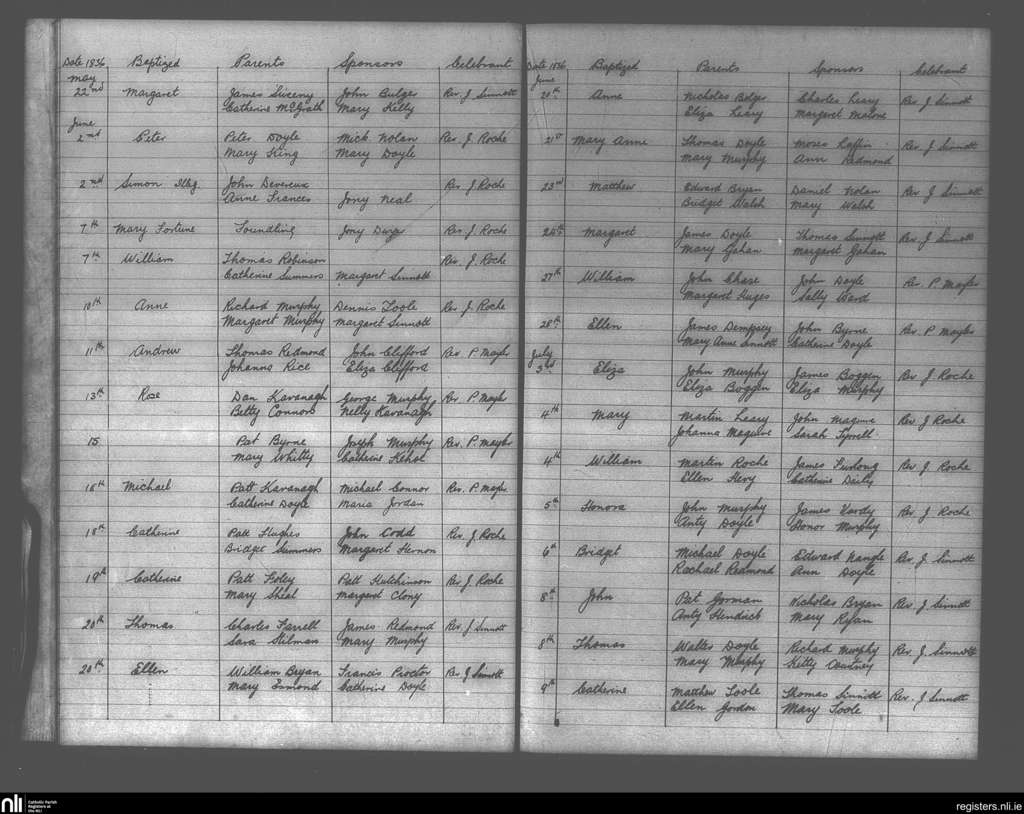 Date 1836 Baptized Parents Sponsors Celebrant
May
22nd Margaret James Sweeny John Bulger Rev. J Sinnott
Catherine McGrath Mary Kelly
June
2nd Peter Peter Doyle Mick. Nolan Rev. J. Roche
Mary King Mary Doyle
2nd Simon Illeg. John Devereux Rev J. Roche
Anne Frances Jony Neal
7th Mary Fortune Foundling Jony Rev. J. Roche
7th William Thomas Robinson Rev. J. Roche
Catherine Summers Margaret Sinnott
10th Anne Richard Murphy Dennis Toole Rev J. Roche
Margaret Murphy Margaret Sinnott
11th Andrew Thomas Redmond John Clifford Rev. P Mayler
Johanna Rice Eliza Clifford
13th Rose Dan Kavanagh George Murphy Rev P. Mayler
Betty Connors Nelly Kavanagh
15 Pat Byrne Joseph Murphy Rev. P. Mayler
Mary Whitty Catherine Kehoe
16th Michael Patt Kavanagh Michael Connor Rev. P Mayler
Catherine Doyle Maria Jordan
18th Catherine Patt Hughes John Codd Rev. J. Roche
Bridget Summers Margaret Hernon
19th Catherine Patt Foley Patt Hutchinson Rev J. Roche
Mary Sheal Margaret Clony
20th Thomas Charles Farrell James Redmond Rev J Sinnott
Sara Stilman Mary Murphy
20th Ellen William Bryan Francis Proctor Rev J Sinnott
Mary Esmond Catherine Doyle
Date 1836 Baptized Parents Sponsors Celebrant
June
20th Anne Nicholas Bolger Charles Leary Rev J. Sinnott
Eliza Leary Margaret Malone
21st Mary Anne Thomas Doyle Moses Laffin Rev J. Sinnott
Mary Murphy Ann Redmond
23rd Matthew Edward Bryan Daniel Nolan Rev J Sinnott
Bridget Walsh Mary Walsh
24th Margaret James Doyle Thomas Sinnott Rev J Sinnott
Mary Gahan Margaret Gahan
27th William John Chase John Doyle Rev. P. Mayler
Margaret Huges Sally Ward
28th Ellen James Dempsey John Byrne Rev P Mayler
Mary Anne Sinnott Catherine Doyle
July
3rd Eliza John Murphy James Boggen Rev J Roche
Eliza Boggen Eliza Murphy
4th Mary Martin Leary John Maguire Rev J Roche
Johanna Maguire Sarah Tyrrell
4th William Martin Roche James Furlong Rev J. Roche
Ellen Hevy Catherine Daily
5th Honora John Murphy James Vardy Rev J. Roche
Anty Doyle Honor Murphy
6th Bridget Michael Doyle Edward Nangle Rev. J. Sinnott
Rachael Redmond Ann Doyle
8th John Pat Gorman Nicholas Bryan Rev. J. Sinnott
Anty Hendrick Mary Ryan
8th Thomas Walter Doyle Richard Murphy Rev. J. Sinnott
Mary Murphy Kitty
9th Catherine Matthew Toole Thomas Sinnott Rev. J Sinnott
Ellen Gordon Mary Toole
nli Catholic Parish
Registers at
the NLI
registers.nli.ie